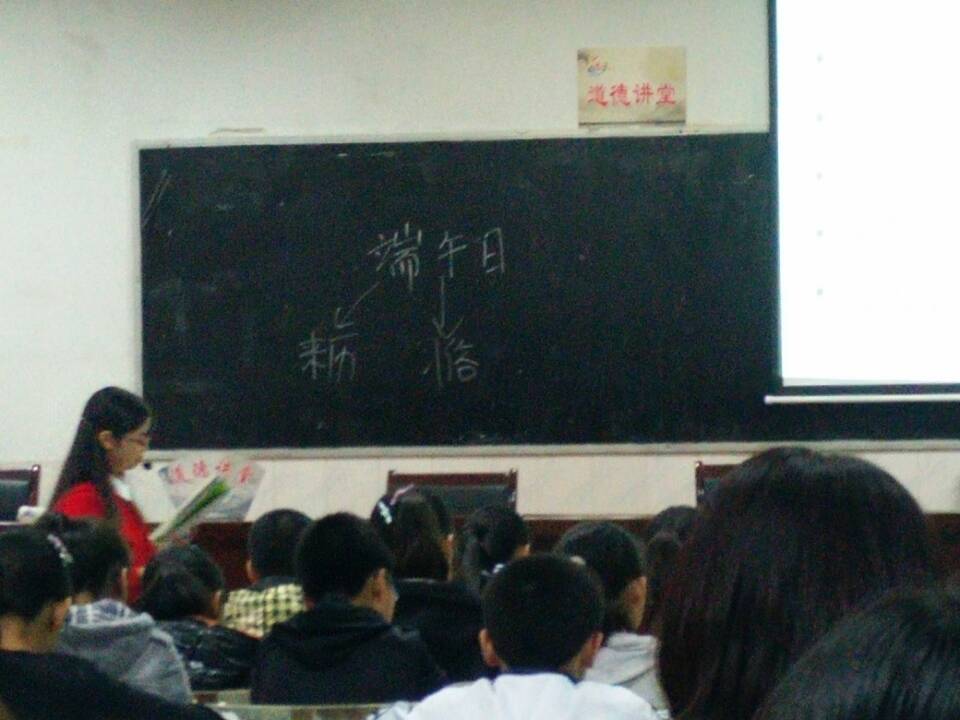 道德讲堂
端午日
道德讲堂